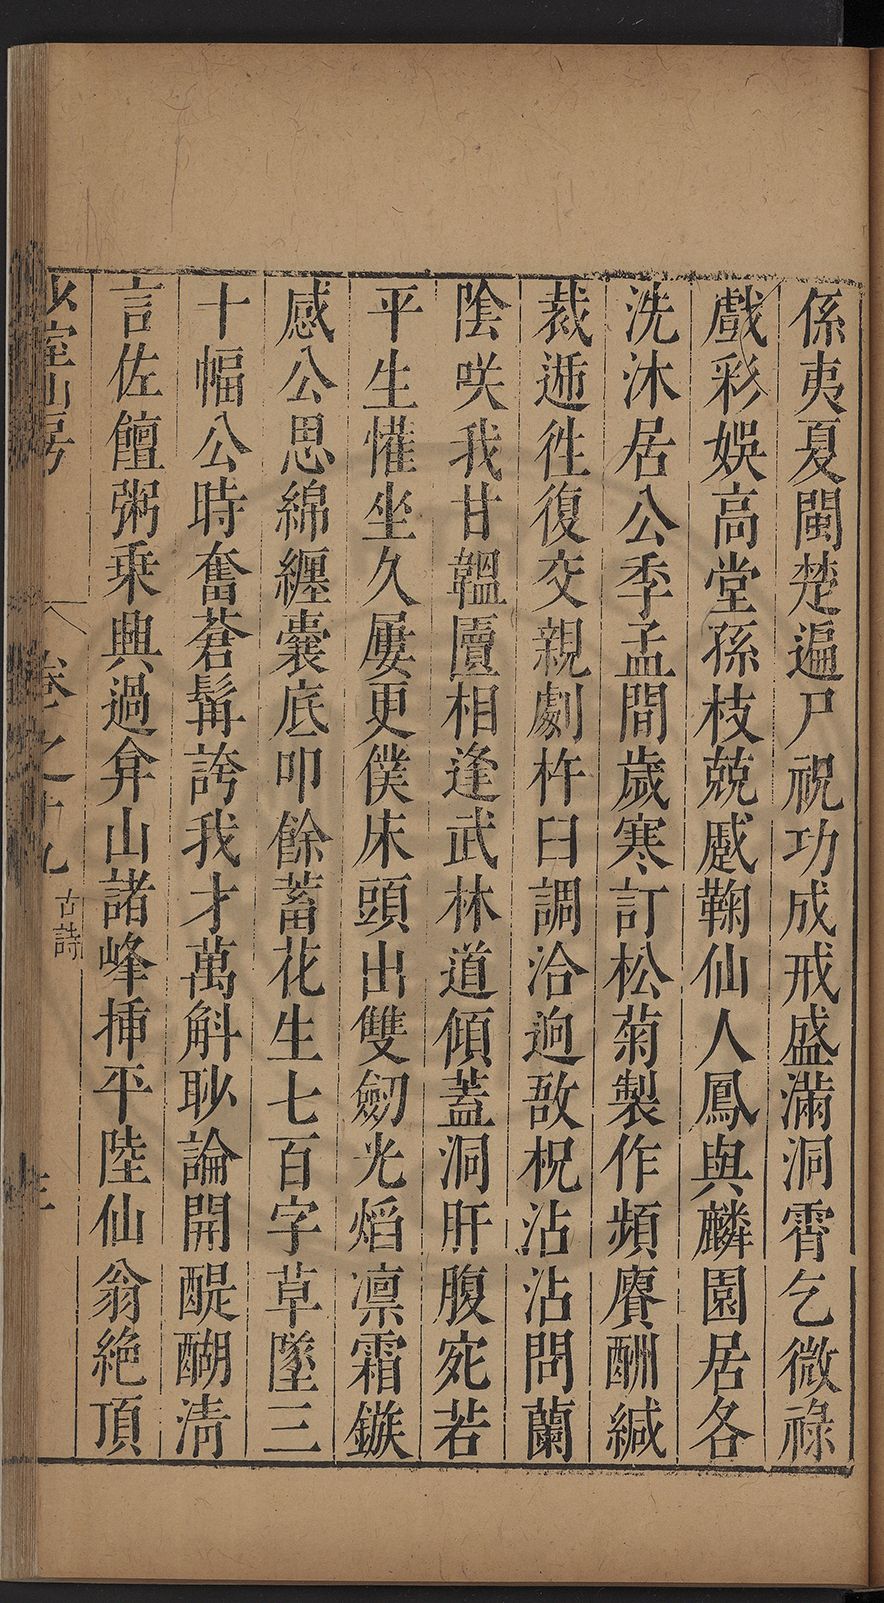 係夷夏閩楚遍尸祝功成戒盛滿洞霄乞微祿
戲彩娛高堂孫枝兢蹙鞠仙人鳳與麟園居各
洗沐居公季孟間歲寒訂松菊製作頻賡酬緘
裁遞徃復交親劇杵臼調洽逈敔柷沾沾問蘭
陰咲我甘韞匵相逢武林道傾蓋洞肝腹宛若
平生懽坐久屢更僕床頭出雙劒光熖凛霜鏃
感公思綿纏囊底叩餘蓄花生七百字草墜三
十幅公時奮蒼髯誇我才萬斛眇論開醍醐清
言佐饘粥乗興過弇山諸峰揷平陸仙翁絶頂
少室山房 卷之十九 古詩 三